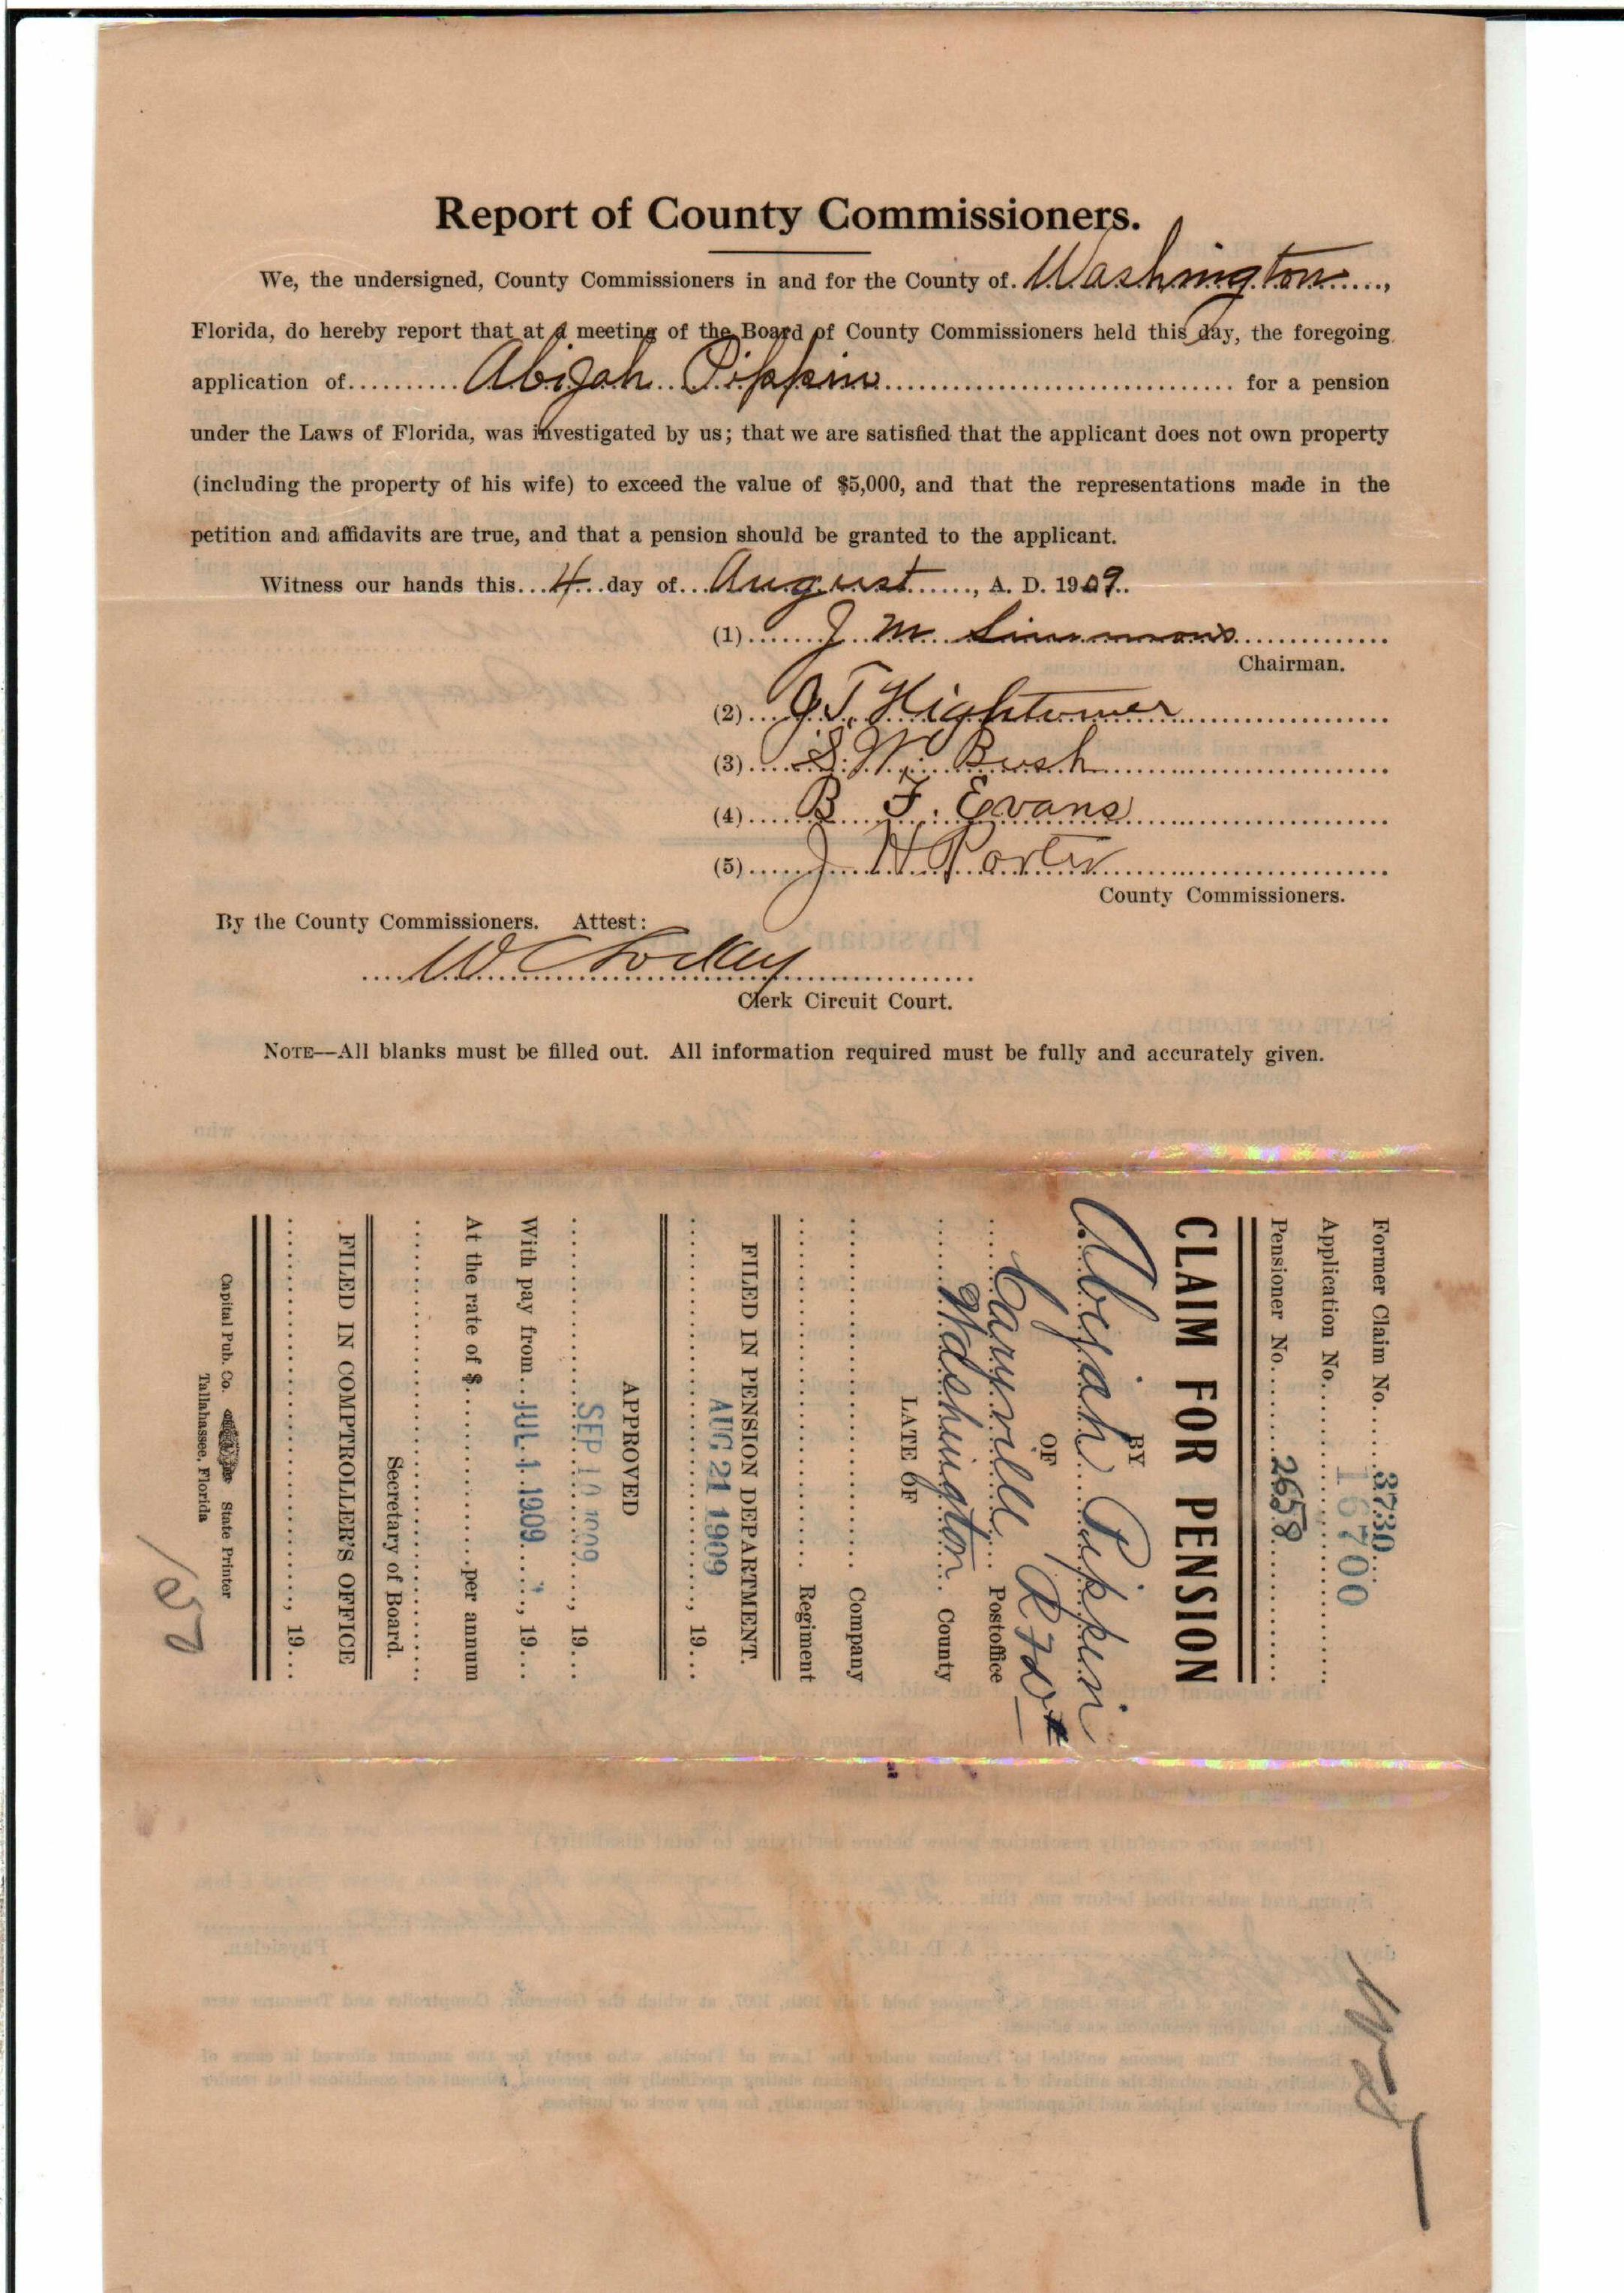 Report of County Commissioners.
We, the undersigned, County Commissioners in and for the County of. Washington.....,
Florida, do hereby report that at a meeting of the Board of County Commissioners held this day, the foregoing
application of.......... Abijah Pippin .......... for a pension
under the Laws of Florida, was investigated by us; that we are satisfied that the applicant does not own property
(including the property of his wife) to exceed the value of $5,000, and that the representations made in the
petition and affidavits are true, and that a pension should be granted to the applicant.
Witness our hands this...4...day of...August......, A. D. 1909..
(1) J M Simmons
Chairman.
(2) J T. Hightower
(3) S. W. Bush
(4) B F. Evans
(5) J H Porter
County Commissioners.
By the County Commissioners. Attest:
W C Lockey
Clerk Circuit Court.
NOTE—All blanks must be filled out. All information required must be fully and accurately given.
Former Claim No. 3730
Application No. 16700
Pensioner No. 2658
CLAIM FOR PENSION
BY
Abijah Pippin
OF
Caryville Postoffice
Washington County
LATE OF
Company
Regiment
FILED IN PENSION DEPARTMENT.
AUG 21 1909, 19...
APPROVED
SEP 10 1909, 19...
With pay from JUL 1 1909, 19...
At the rate of $..........per annum
Secretary of Board.
FILED IN COMPTROLLER'S OFFICE
, 19...
Capital Pub. Co. State Printer
Tallahassee, Florida